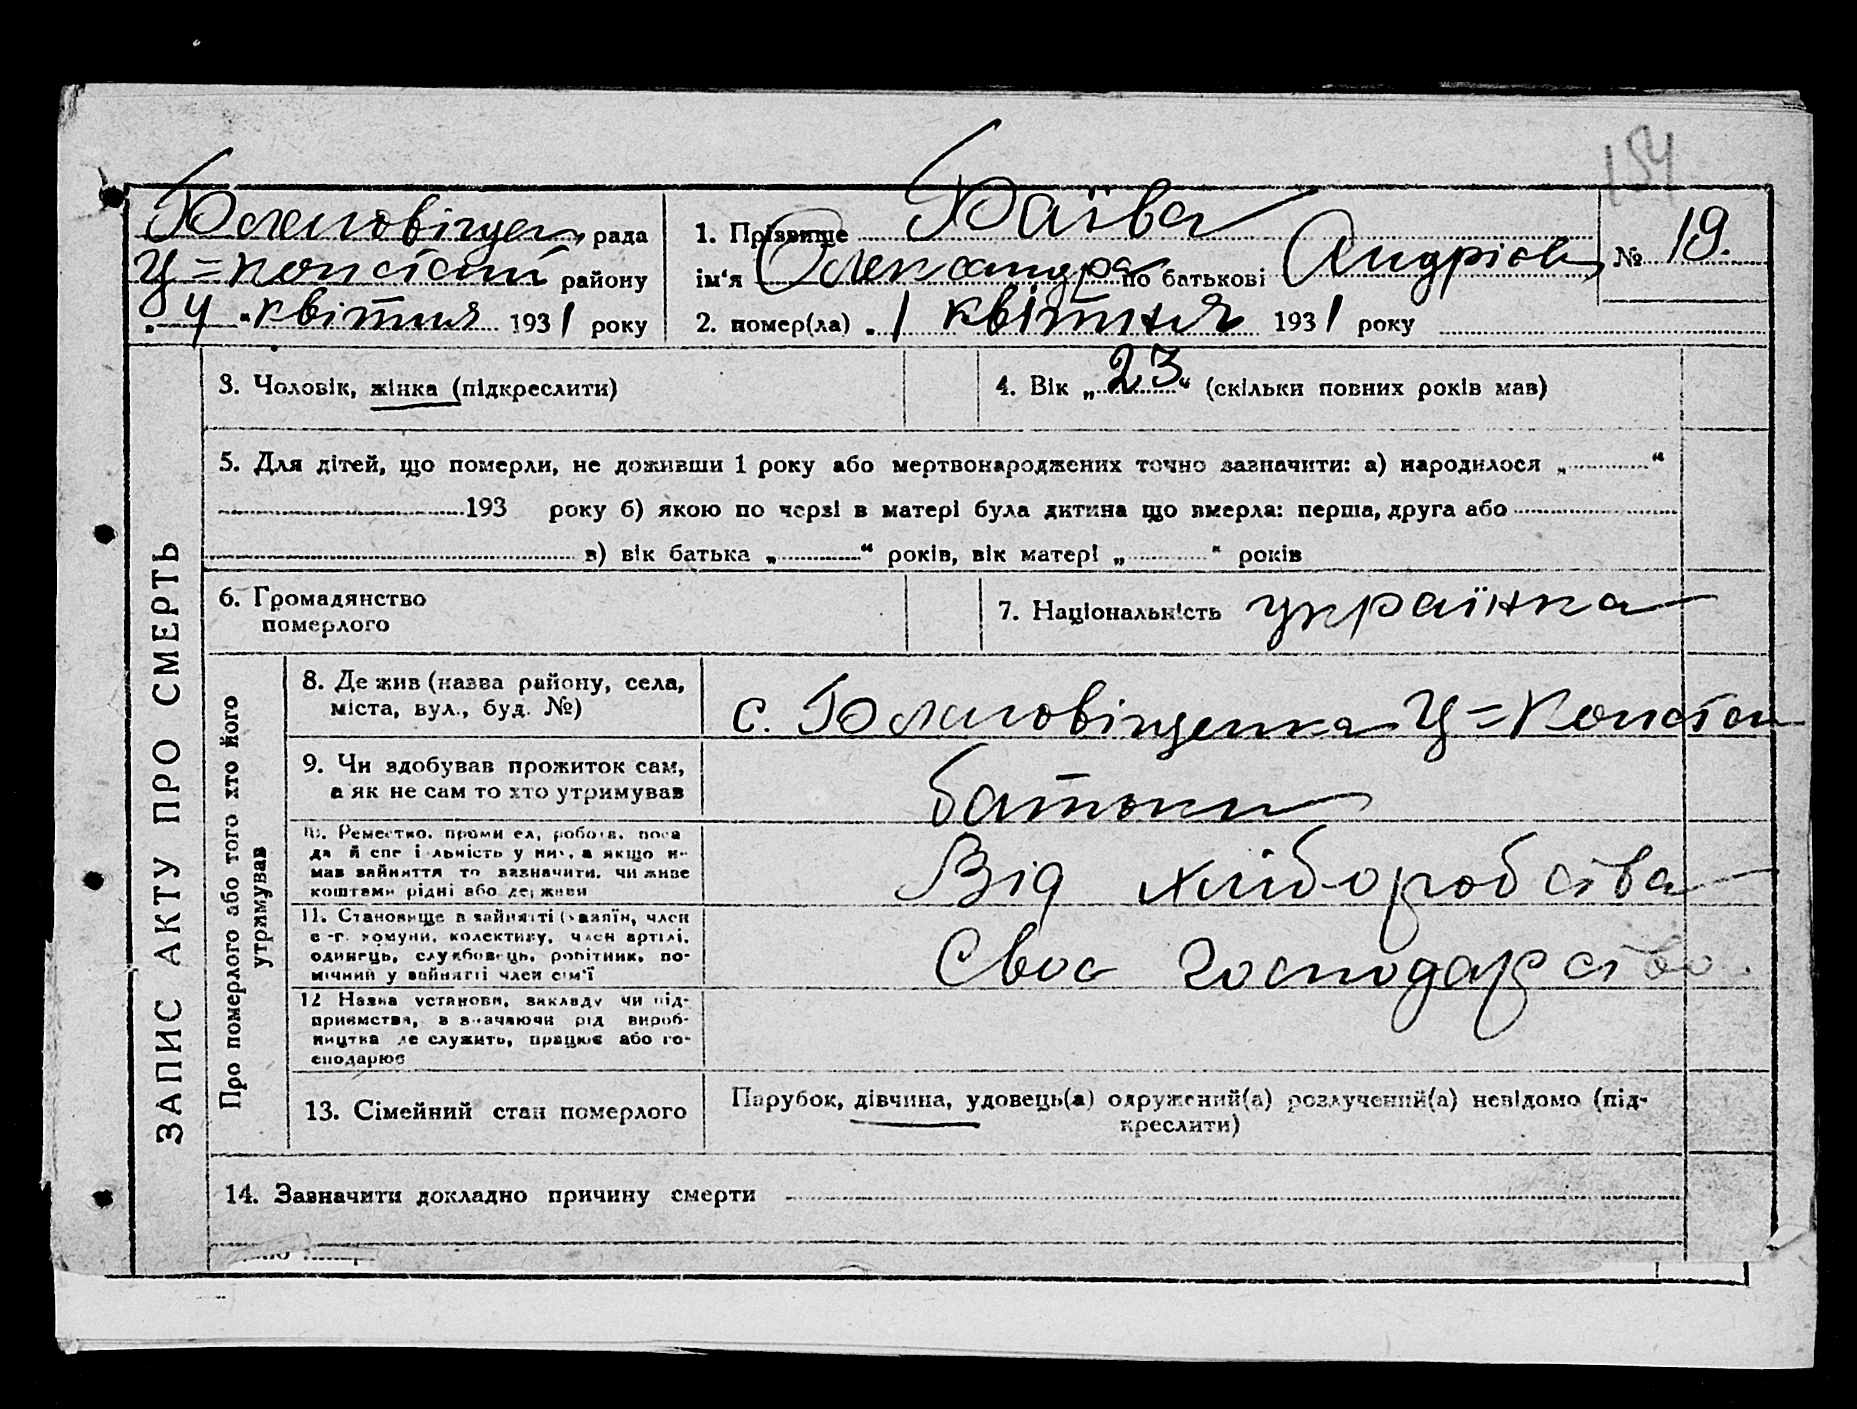 154
Благовіщен. рада
Ц=Констянт району
„4“ квітня 1931 року
1. Прізвище Баїва
ім‘я Олександра по батькові Андріов
№ 19.
2. помер(ла) „1 квітня 1931 року
ЗАПИС АКТУ ПРО СМЕРТЬ
3. Чоловік, жінка (підкреслити)
4. Вік „23“ (скільки повних років мав)
5. Для дітей, що померли, не доживши 1 року або мертвонароджених точно зазначити: а) народилося „ “
193 року б) якою по черзі в матері була дитина що вмерла: перша, друга або
в) вік батька „ “ років, вік матері „ “ років
6. Громадянство
померлого
7. Національність українка
Про померлого або того хто його
утримував
8. Де жив (назва району, села,
міста, вул., буд. №)
с. Благовіщенка Ц=Констан
9. Чи здобував прожиток сам,
а як не сам то хто утримував
батьки
10. Ремество, промисел, робота, поса
да й спеціальність у них, а якщо не
мав зайняття то зазначити, чи живе
коштами рідні або держави
Від хліборобства
11. Становище в зайнятті (хазяїн, член
с-г. комуни, колективу, член артілі,
одинець, службовець, робітник, по-
мічний у зайнятті член сім'ї
Своє господарство.
12 Назва установи, закладу чи під-
приємства, зазначаючи рід вироб-
ництва де служить, працює або го-
сподарює
13. Сімейний стан померлого
Парубок, дівчина, удовець(а) одружений(а) розлучений(а) невідомо (під-
креслити)
14. Зазначити докладно причину смерти